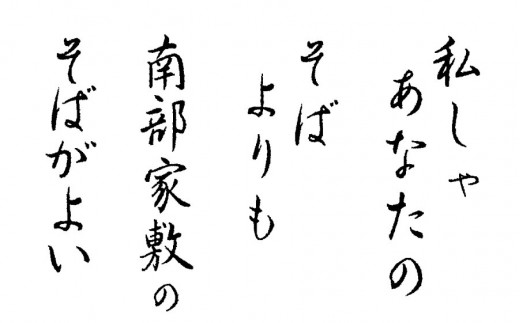 私しゃ
あなたの
そば
よりも
南部家敷の
そばがよい